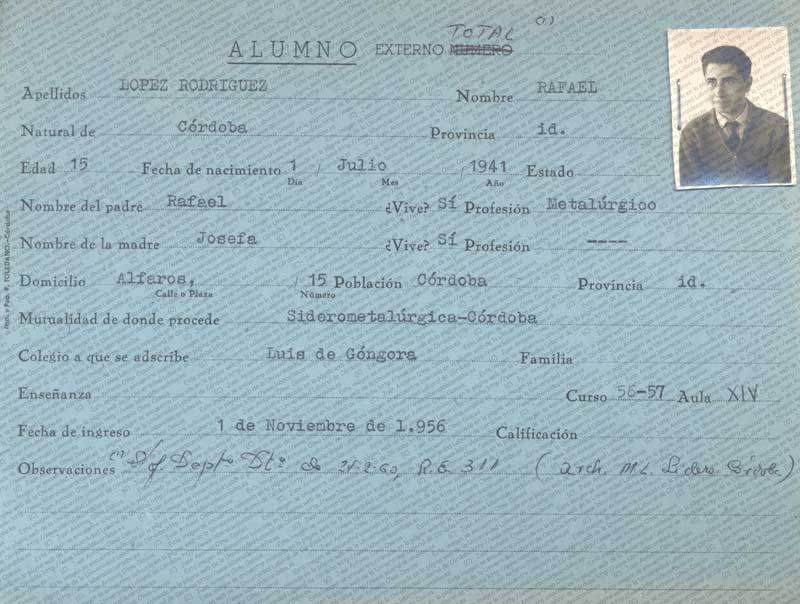 TOTAL (1)
ALUMNO EXTERNO NUMERO
Apellidos LOPEZ RODRIGUEZ Nombre RAFAEL
Natural de Córdoba Provincia id.
Edad 15 Fecha de nacimiento 1 / Julio / 1941 Estado
Día Mes Año
Nombre del padre Rafael ¿Vive? Sí Profesión Metalúrgico
Nombre de la madre Josefa ¿Vive? Sí Profesión ----
Domicilio Alfaros, / 15 Población Córdoba Provincia id.
Calle o Plaza Número
Mutualidad de donde procede Siderometalúrgica-Córdoba
Colegio a que se adscribe Luis de Góngora Familia
Enseñanza Curso 56-57 Aula XIV
Fecha de ingreso 1 de Noviembre de 1.956 Calificación
Observaciones (1) Depto Dtº de 21-2-60, R.E. 311 (arch. M.L. Sidero. Córdoba)
Imp. y Pap. F. TOLEDANO.-Córdoba